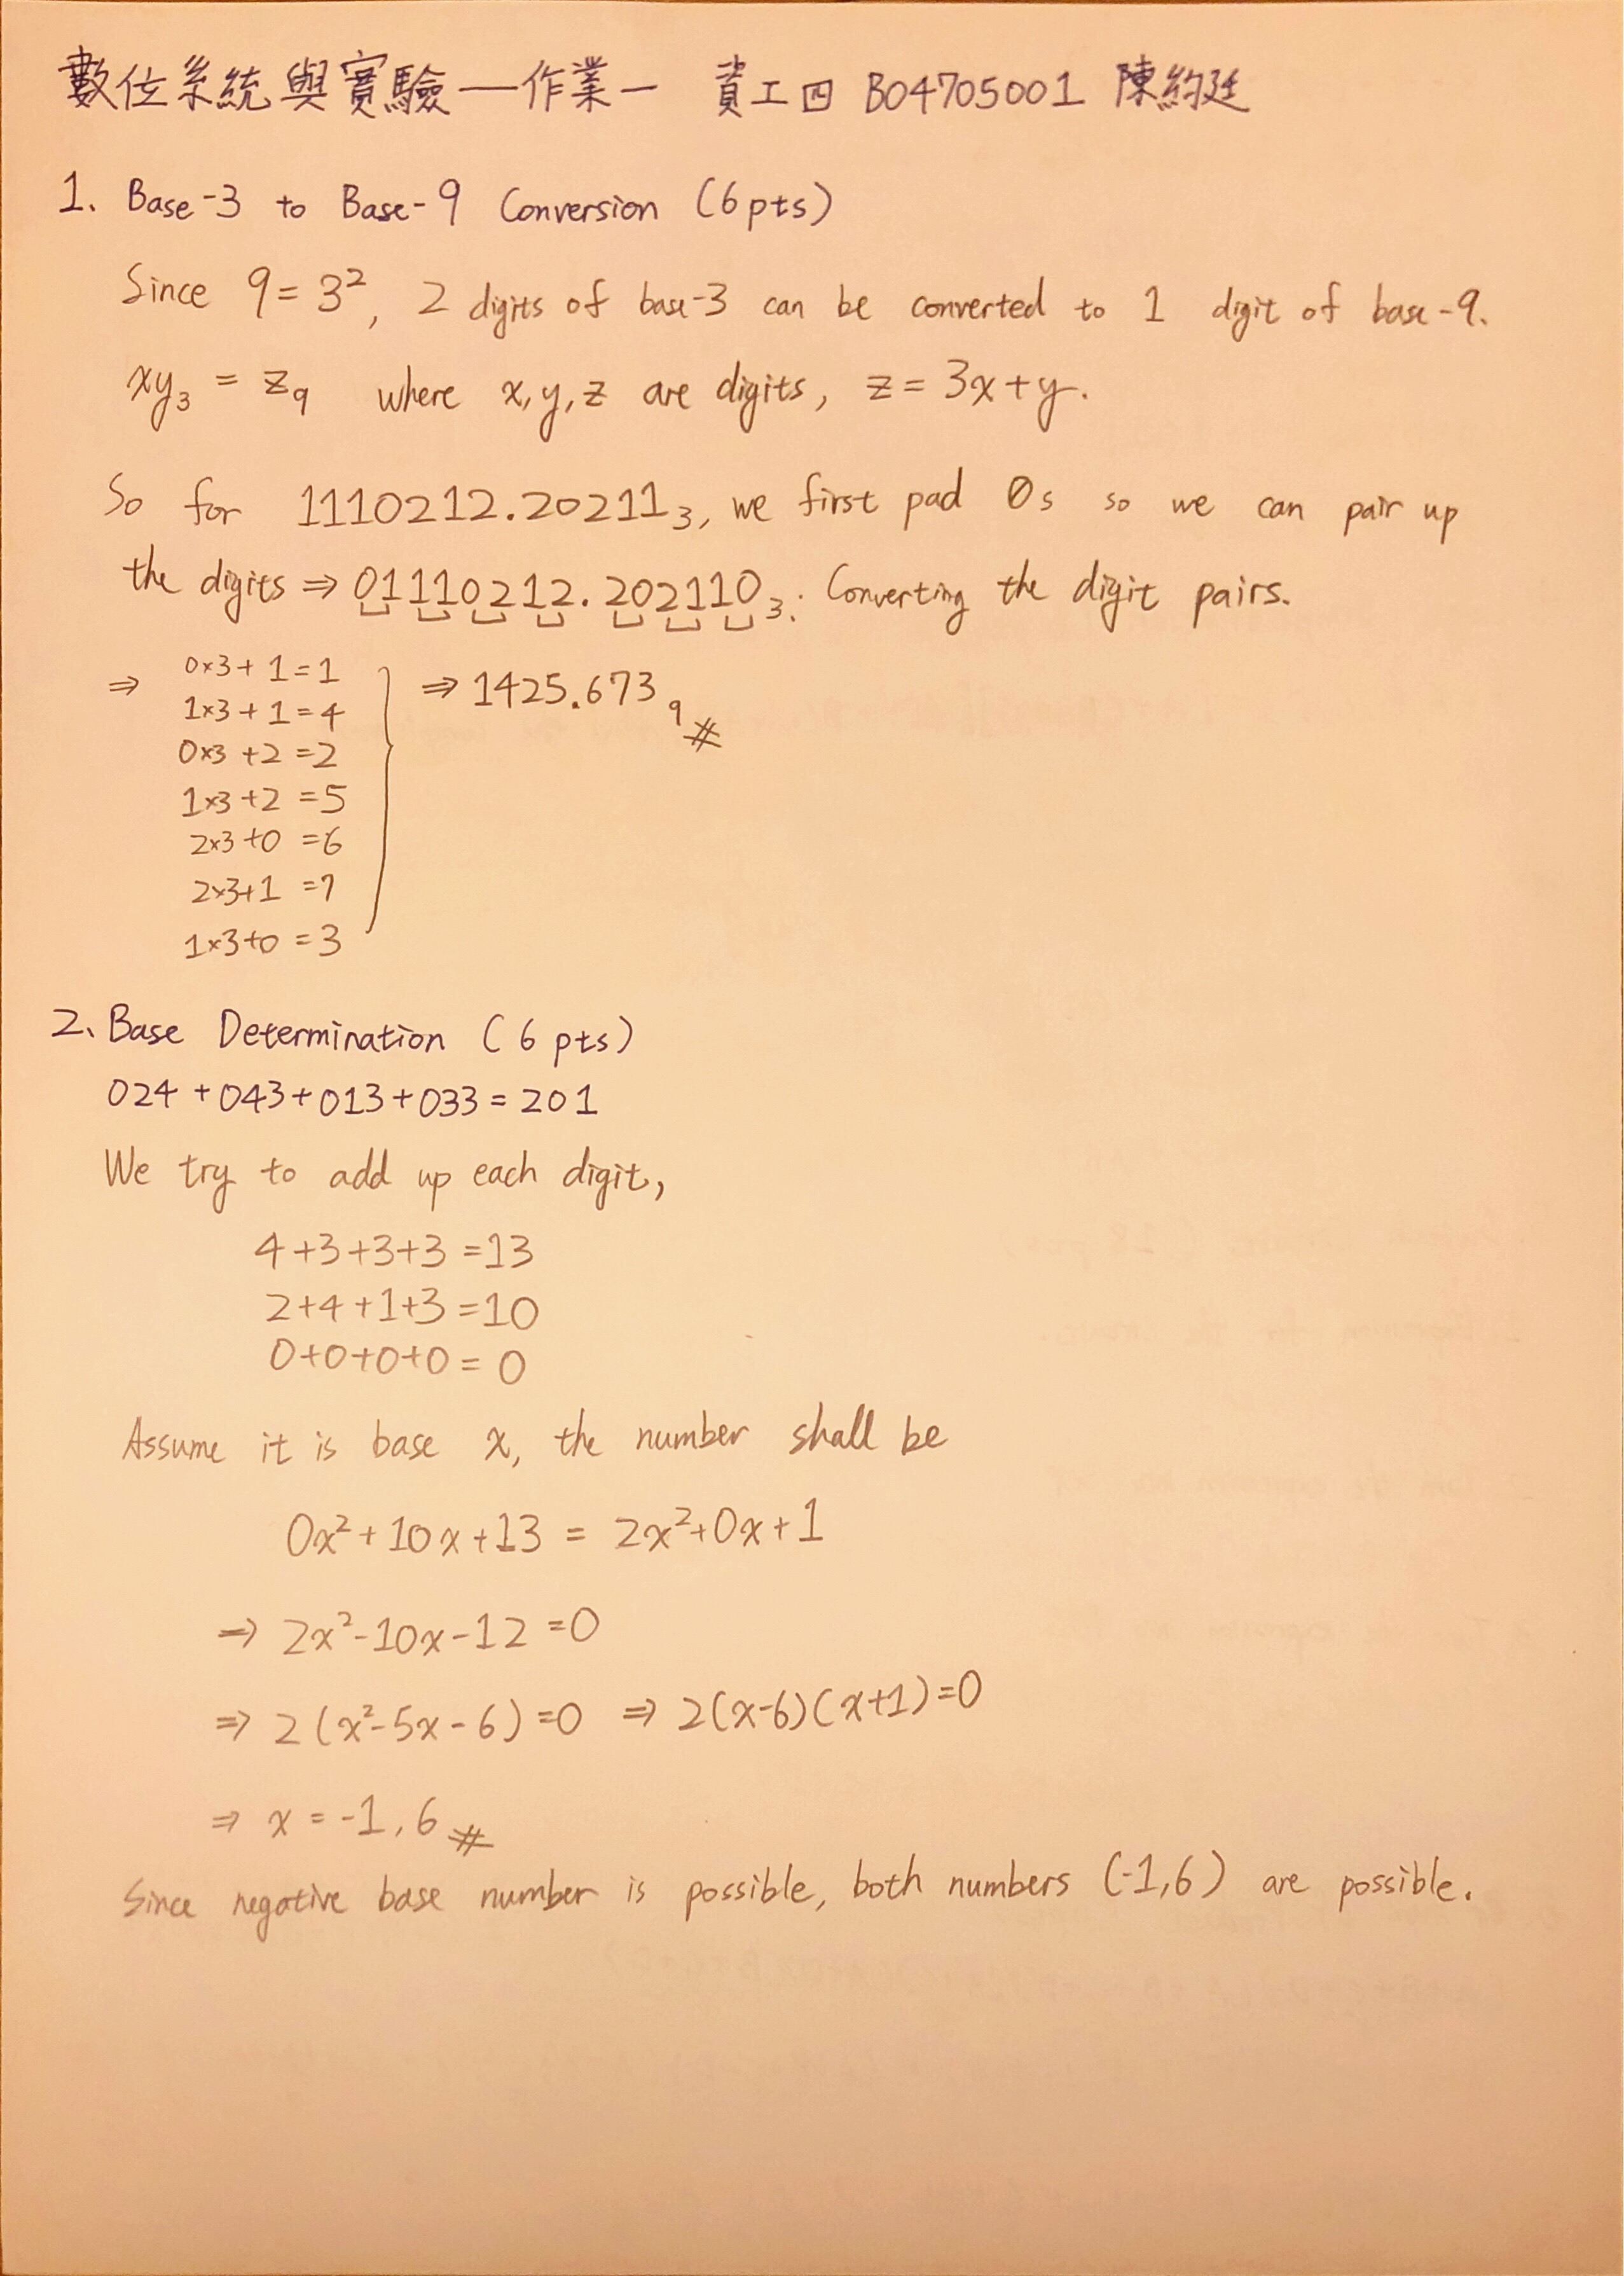 數位系統與實驗—作業一 資工四 B04705001 陳約廷
1. Base-3 to Base-9 Conversion (6pts)
Since 9=3², 2 digits of base-3 can be converted to 1 digit of base-9.
xy₃ = z₉ where x,y,z are digits, z=3x+y.
So for 1110212.20211₃, we first pad 0s so we can pair up
the digits ⇒ 01110212.202110₃. Converting the digit pairs.
⇒ 0×3+1=1
1×3+1=4
0×3+2=2
1×3+2=5
2×3+0=6
2×3+1=7
1×3+0=3
⇒ 1425.673₉ #
2. Base Determination (6 pts)
024+043+013+033=201
We try to add up each digit,
4+3+3+3=13
2+4+1+3=10
0+0+0+0=0
Assume it is base x, the number shall be
0x²+10x+13 = 2x²+0x+1
⇒ 2x²-10x-12=0
⇒ 2(x²-5x-6)=0 ⇒ 2(x-6)(x+1)=0
⇒ x=-1,6 #
Since negative base number is possible, both numbers (-1,6) are possible.